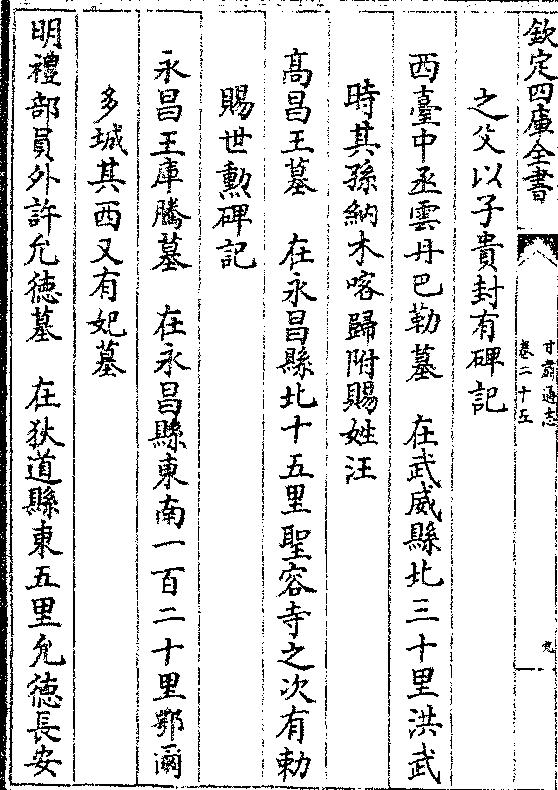 欽定四庫全書
甘肅通志
卷二十五
九
之父以子貴封有碑記
西臺中丞雲丹巴勒墓　在武威縣北三十里洪武
時其孫納木喀歸附賜姓汪
高昌王墓　在永昌縣北十五里聖容寺之次有勅
賜世勲碑記
永昌王庫騰墓　在永昌縣東南一百二十里鄂爾
多城其西又有妃墓
明禮部員外許允德墓　在狄道縣東五里允德長安